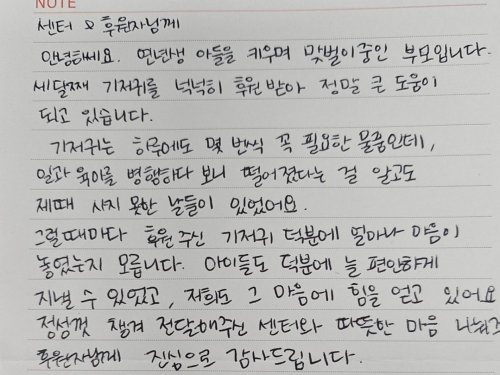 NOTE
센터 & 후원자님께
안녕하세요. 연년생 아들을 키우며 맞벌이중인 부모입니다.
세달째 기저귀를 넉넉히 후원 받아 정말 큰 도움이
되고 있습니다.
기저귀는 하루에도 몇 번씩 꼭 필요한 물품인데,
일과 육아를 병행하다 보니 떨어졌다는 걸 알고도
제때 사지 못한 날들이 있었어요.
그럴때마다 후원 주신 기저귀 덕분에 얼마나 마음이
놓였는지 모릅니다. 아이들도 덕분에 늘 편안하게
지낼 수 있었고, 저희도 그 마음에 힘을 얻고 있어요
정성껏 챙겨 전달해주신 센터와 따뜻한 마음 나눠주
후원자님께 진심으로 감사드립니다.